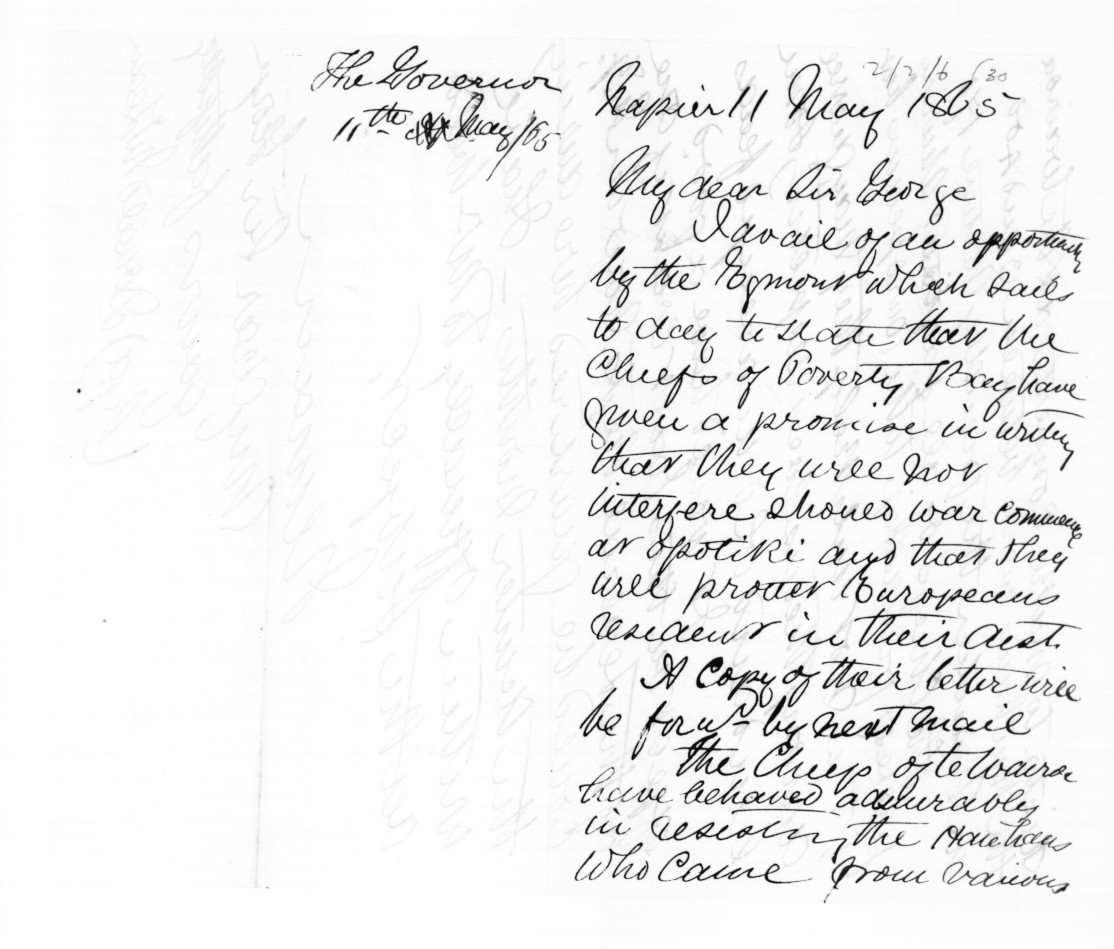 The Governor
11th May/65
2/2/6 (30
Napier 11 May 1865
My dear Sir George
I avail of an opportunity
by the Egmont which sails
to day to state that the
Chiefs of Poverty Bay have
given a promise in writing
that they will not
interfere should war commence
at Opotiki and that they
will protect Europeans
resident in their dist.
A Copy of their letter will
be forwd by next mail
The Chiefs of te Wairoa
have behaved admirably
in resisting the Hauhaus
who came from various